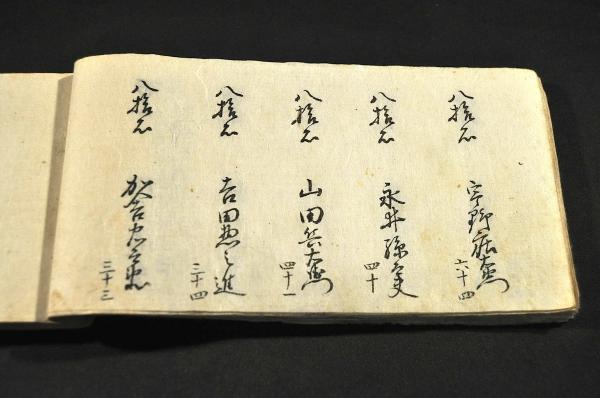 八拾石
宇野庄右衛門
六十四
八拾石
永井孫太夫
四十
八拾石
山田兵左衛門
四十一
八拾石
吉田惣之進
三十四
八拾石
三十三